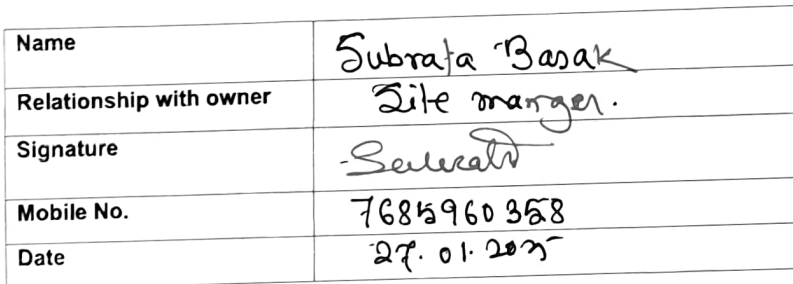 Name Subrata Basak
Relationship with owner Site manger.
Signature
Mobile No. 7685960358
Date 27.01.2025